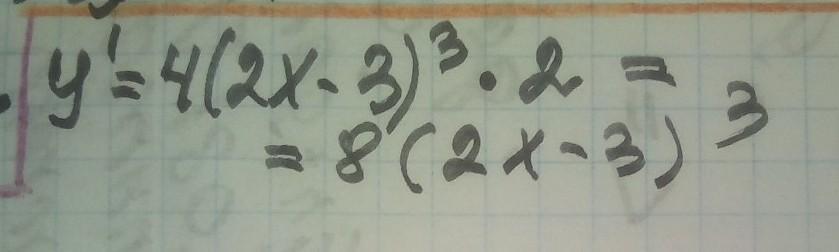 y' = 4(2x - 3)³ · 2 =
= 8(2x - 3)³